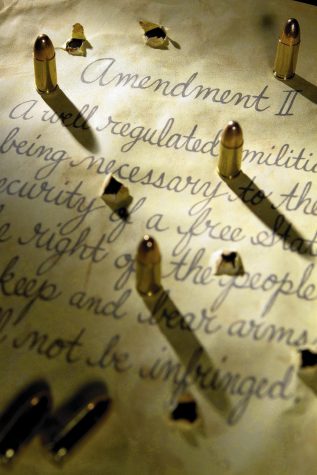 Amendment II
A well regulated militi
being necessary to the
ecurity of a free Stat
e right of the people
keep and bear arms
l not be infringed.